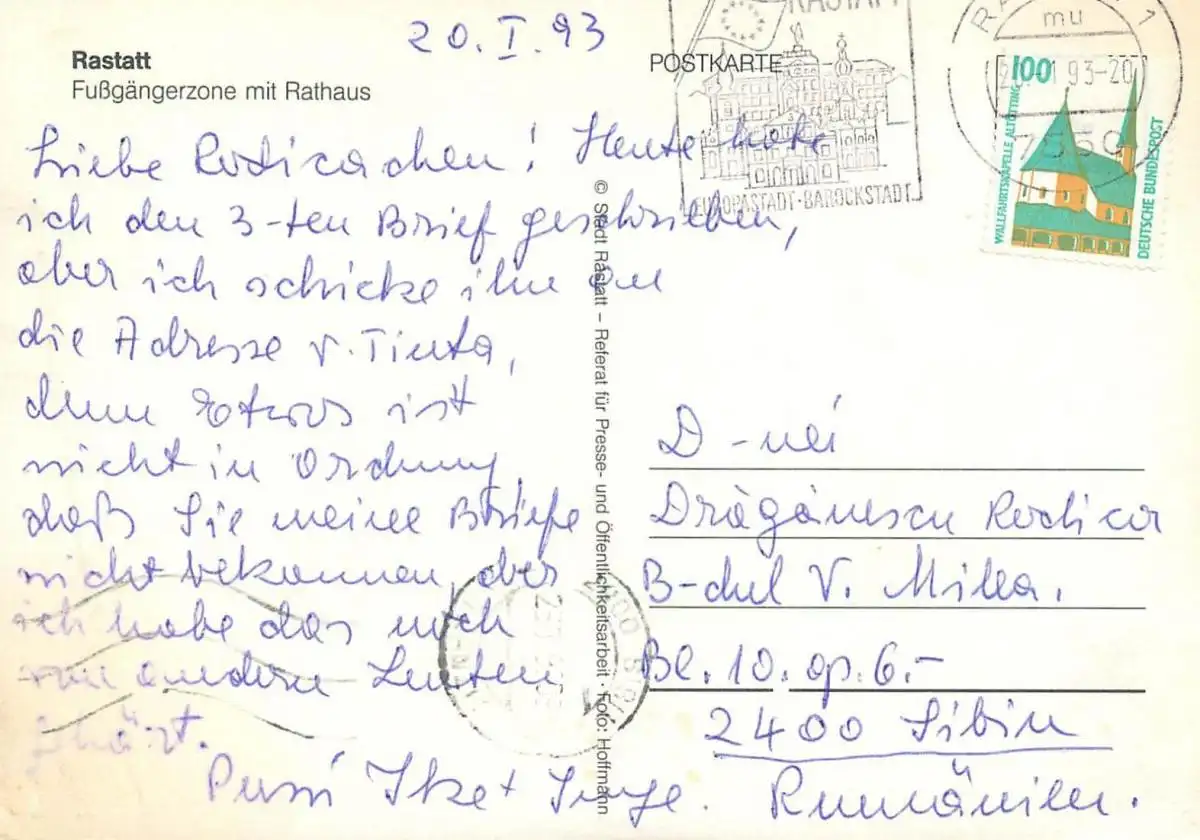 20.I.93
Rastatt
Fußgängerzone mit Rathaus
Liebe Rodicachen! Heute habe
ich den 3-ten Brief geschrieben,
aber ich schicke ihn an
die Adresse v. Tinta,
denn Etwas ist
nicht in Ordnung
daß Sie meine Briefe
nicht bekommen, aber
ich habe das noch
von andern Leuten
gehört.
Pusi Ilke + Inge.
© Stadt Rastatt – Referat für Presse- und Öffentlichkeitsarbeit · Foto: Hoffmann
POSTKARTE
RASTATT
EUROPASTADT-BAROCKSTADT
RASTATT 1
mu
93-20
7550
100
WALLFAHRTSKAPELLE ALTÖTTING
DEUTSCHE BUNDESPOST
D-nei
Drăgănescu Rodica
B-dul V. Milea.
Bl. 10. ap. 6.-
2400 Sibiu
Rumänien.
2400 SIBIU